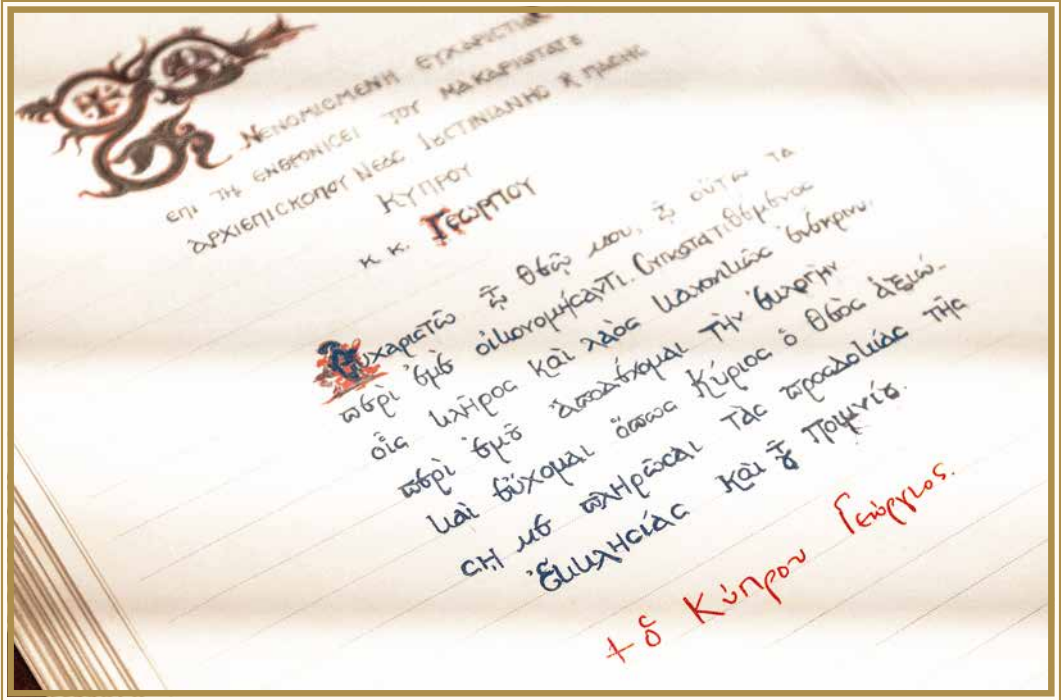 ΝΕΝΟΜΙCΜΕΝΗ ΕΥΧΑΡΙCΤΙΑ
ΕΠΙ ΤΗ ΕΝΘΡΟΝΙCΕΙ ΤΟΥ ΜΑΚΑΡΙΩΤΑΤȢ
ἈΡΧΙΕΠΙCΚΟΠΟΥ ΝΕΑC ἸȢCΤΙΝΙΑΝΗC ϗ ΠΑCΗC
ΚΥΠΡΟΥ
Κ.Κ. ΓΕΩΡΓΙΟΥ
Εὐχαριστῶ τῷ Θεῷ μου, τῷ οὕτω τὰ
περὶ ἐμὲ οἰκονομήσαντι. Συγκατατιθέμενος
οἷς κλῆρος καὶ λαὸς κανονικῶς ἐνέκρινε
περὶ ἐμȣ͂ ἀποδέχομαι τὴν ἐκλογὴν
καὶ εὔχομαι ὅπως Κύριος ὁ Θεὸς ἀξιώ-
σῃ με πληρῶσαι τὰς προσδοκίας τῆς
Ἐκκλησίας καὶ τȣ͂ ποιμνίȣ.
+ ὁ Κύπρου Γεώργιος.